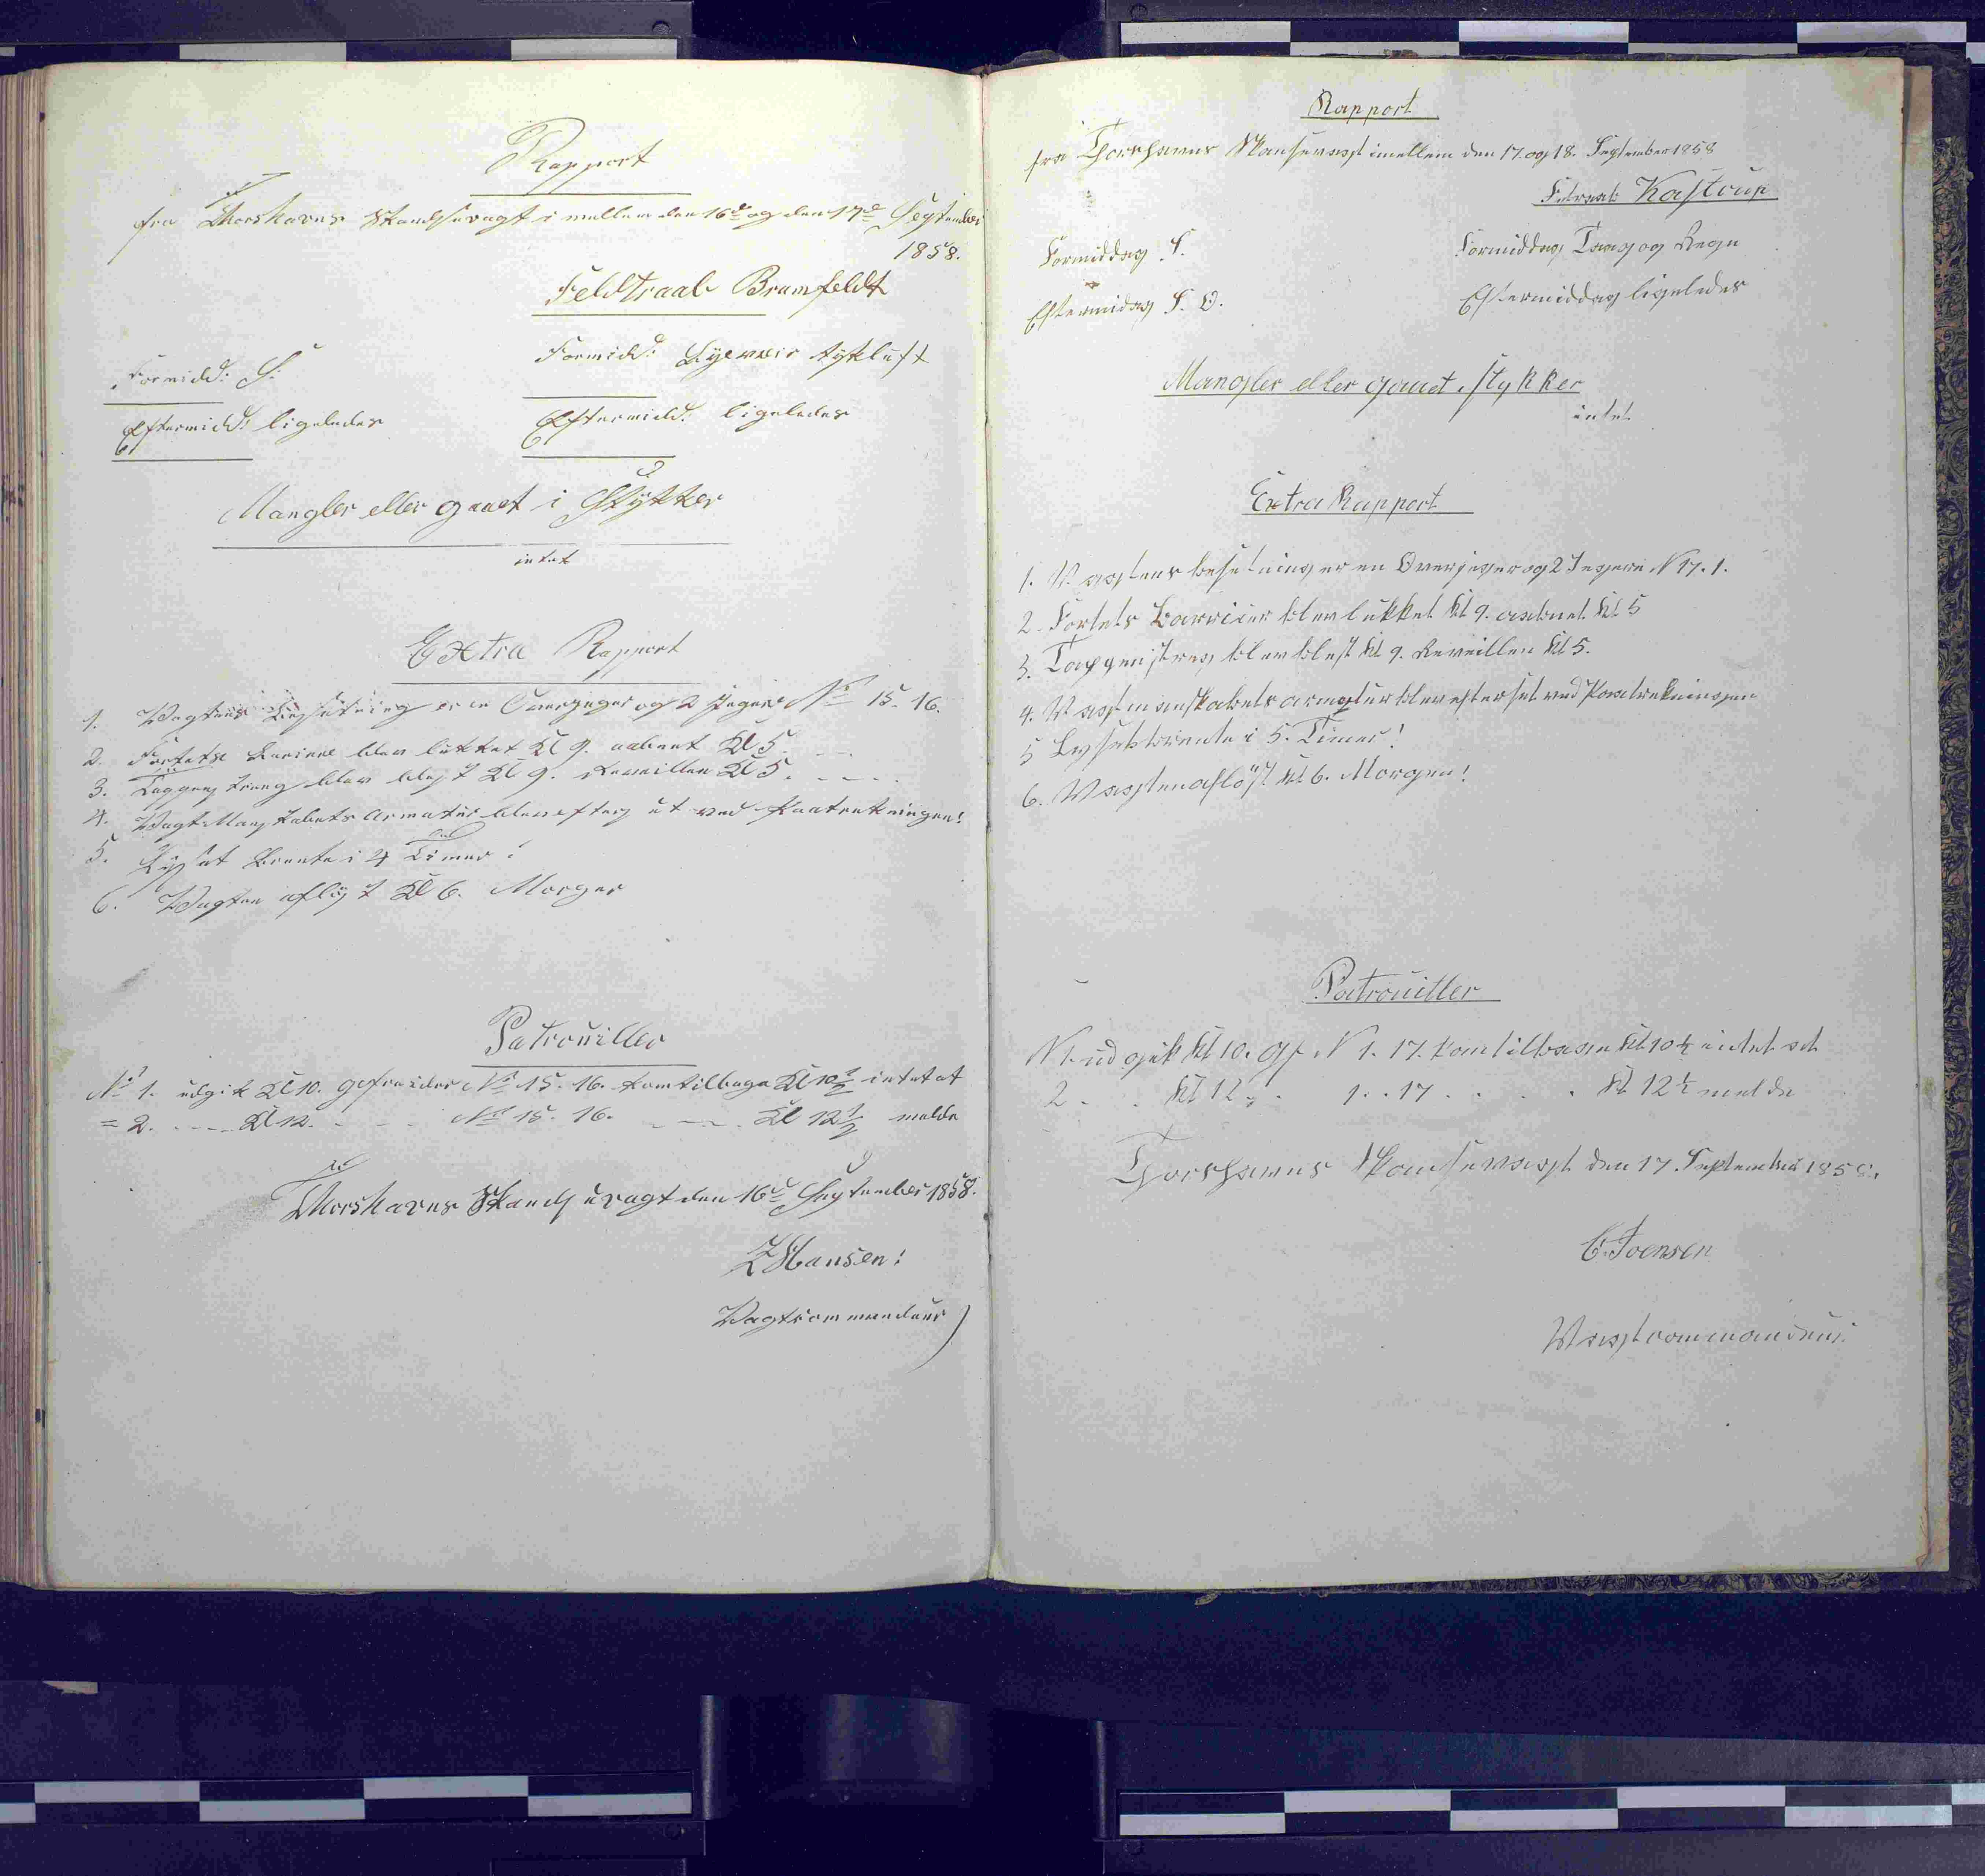 Rapport
fra Thorshavns Skandsevagt i mellem den 16d og den 17d September
1858.
Feldtraab Bramfeldt
Formidd: S: Formidd: tykluft
Eftermidd: ligeledes Eftermidd: ligeledes
Mangler eller gaaet i Stykker
intet
Extra Rapport
1. Vagtens Besætning er en Overjæger og 2 Jægere No 15. 16.
2. Fortets Bariere blev lukket Kl 9. aabnet Kl 5.
3. Tappenstreg blev blest Kl 9. Reveillen Kl 5.
4. Vagt-Manskabets Armatur blev efterset ved Paatrekningen!
5. Lyset Brente i 4 Timer!
6. Vagten afløst Kl 6. Morgen
Patrouiller
No 1. udgik Kl 10. Gefreider No 15. 16. kom tilbage Kl 10½ intet at
= 2. Kl 12. No 15. 16. Kl 12½ melde
Thorshavns Skandsevagt den 16d September 1858.
Z Hansen!
Vagtcommandeur
Rapport
fra Thorshavns Skansevagt imellem den 17. og 18. September 1858
Feltraab Kastrup
Formiddag S. Formiddag Taag og Regn
Eftermidag S. O. Eftermiddag ligeledes
Mangler eller gaaet i stykker
intet
Extra Rapport
1. Vagtens besetning er en Overjeger og 2 Jegere N 17. 1.
2. Fortets Barrier blev lukket Kl 9. aabnet Kl 5
3. Tappenstreg blev blest Kl 9. Reveillen Kl 5.
4. Vagtmanskabets armatur blev efterset ved Paatrekningen
5 Lyset brente i 5. Timer!
6. Vagten afløst Kl. 6. Morgen!
Patrouiller
N 1. udgik Kl 10. Gf N 1. 17. kom tilbage Kl 10½ intet at
2 Kl 12 1. 17 Kl 12½ melde
Thorshavns Skansevagt den 17. September 1858.
C. Joensen
Vagtcommandeur.